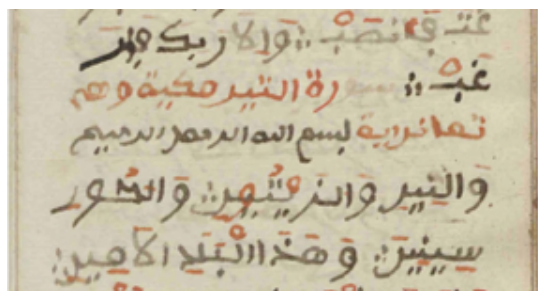 غت فانصب وإلى ربك فار
غب سورة التين مكية وهي
ثمان آية بسم الله الرحمن الرحيم
وَالتِّينِ وَالزَّيْتُونِ وَالطُّورِ
سِينِينَ وَهَذَا الْبَلَدِ الْأَمِينِ